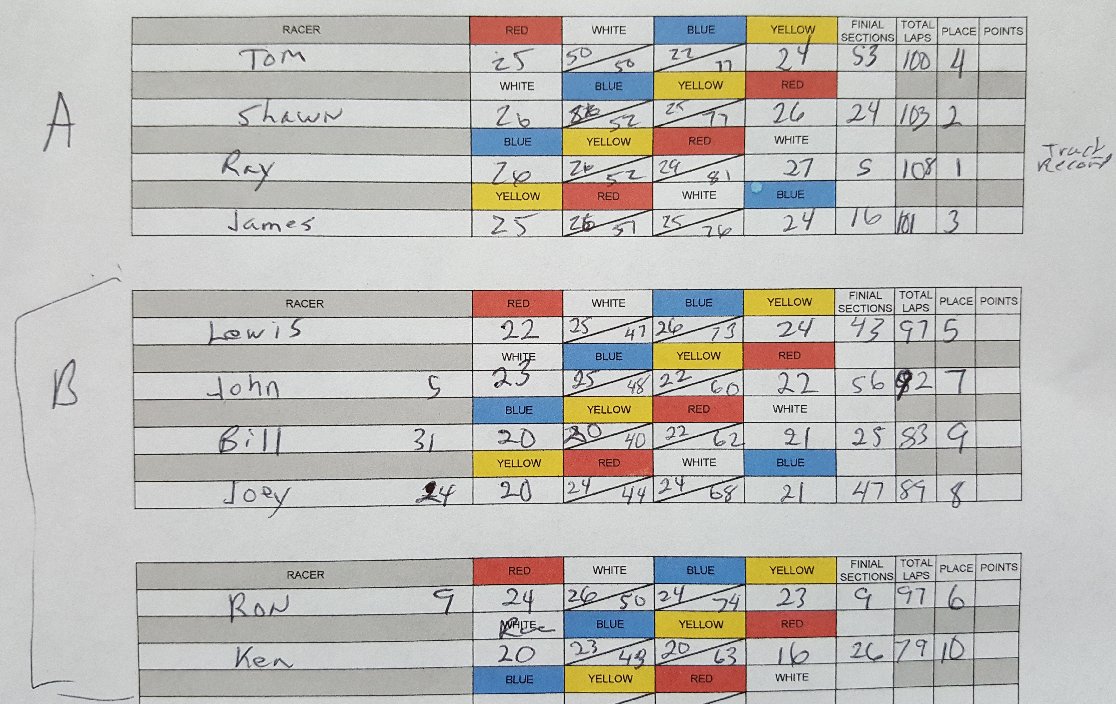 RACER RED WHITE BLUE YELLOW FINIAL SECTIONS TOTAL LAPS PLACE POINTS
Tom 25 50/50 22/77 24 53 100 4
WHITE BLUE YELLOW RED
A Shawn 26 26/52 25/77 26 24 103 2
BLUE YELLOW RED WHITE
Ray 26 26/52 29/81 27 5 108 1 Track Record
YELLOW RED WHITE BLUE
James 25 26/51 25/76 24 16 101 3
RACER RED WHITE BLUE YELLOW FINIAL SECTIONS TOTAL LAPS PLACE POINTS
Lewis 22 25/47 26/73 24 43 97 5
WHITE BLUE YELLOW RED
B John 5 23 25/48 22/60 22 56 82 7
BLUE YELLOW RED WHITE
Bill 31 20 20/40 22/62 21 25 83 9
YELLOW RED WHITE BLUE
Joey 24 20 24/44 24/68 21 47 89 8
RACER RED WHITE BLUE YELLOW FINIAL SECTIONS TOTAL LAPS PLACE POINTS
RON 9 24 26/50 24/74 23 9 97 6
WHITE BLUE YELLOW RED
Ken 20 23/43 20/63 16 26 79 10
BLUE YELLOW RED WHITE